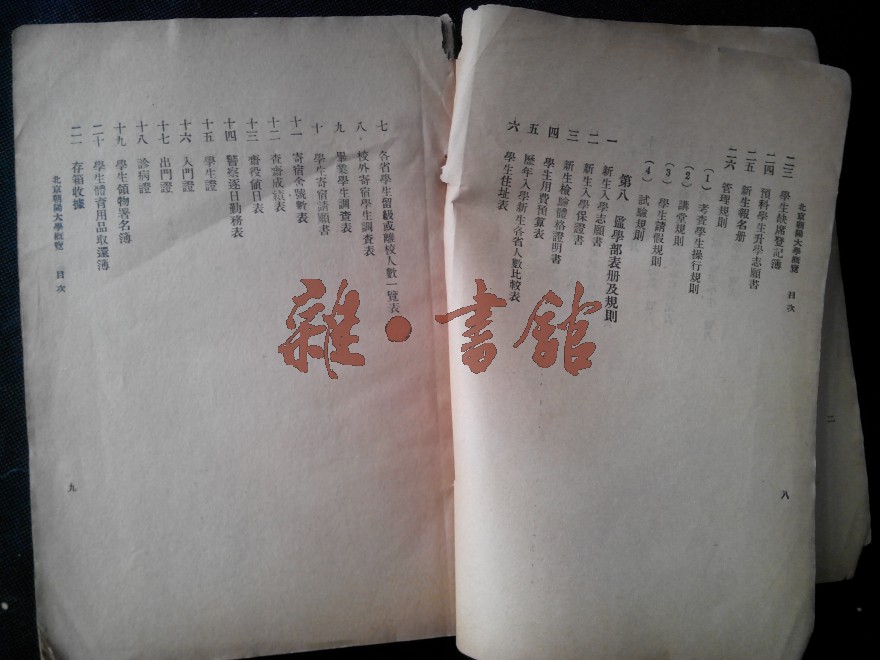 北京朝陽大學概覽 目次
二三 學生缺席登記簿
二四 預科學生升學志願書
二五 新生報名册
二六 管理規則
(1) 考查學生操行規則
(2) 講堂規則
(3) 學生請假規則
(4) 試驗規則
第八 監學部表册及規則
一 新生入學志願書
二 新生入學保證書
三 新生檢驗體格證明書
四 學生用費預算表
五 歷年入學新生各省人數比較表
六 學生住址表
八
二
七 各省學生留級或離校人數一覽表
八 校外寄宿學生調查表
九 畢業學生調查表
十 學生寄宿請願書
十一 寄宿舍號數表
十二 查齋成績表
十三 齋役值日表
十四 警察逐日勤務表
十五 學生證
十六 入門證
十七 出門證
十八 診病證
十九 學生領物署名簿
二十 學生體育用品取還簿
二一 存箱收據
北京朝陽大學概覽 目次
九
雜·書館